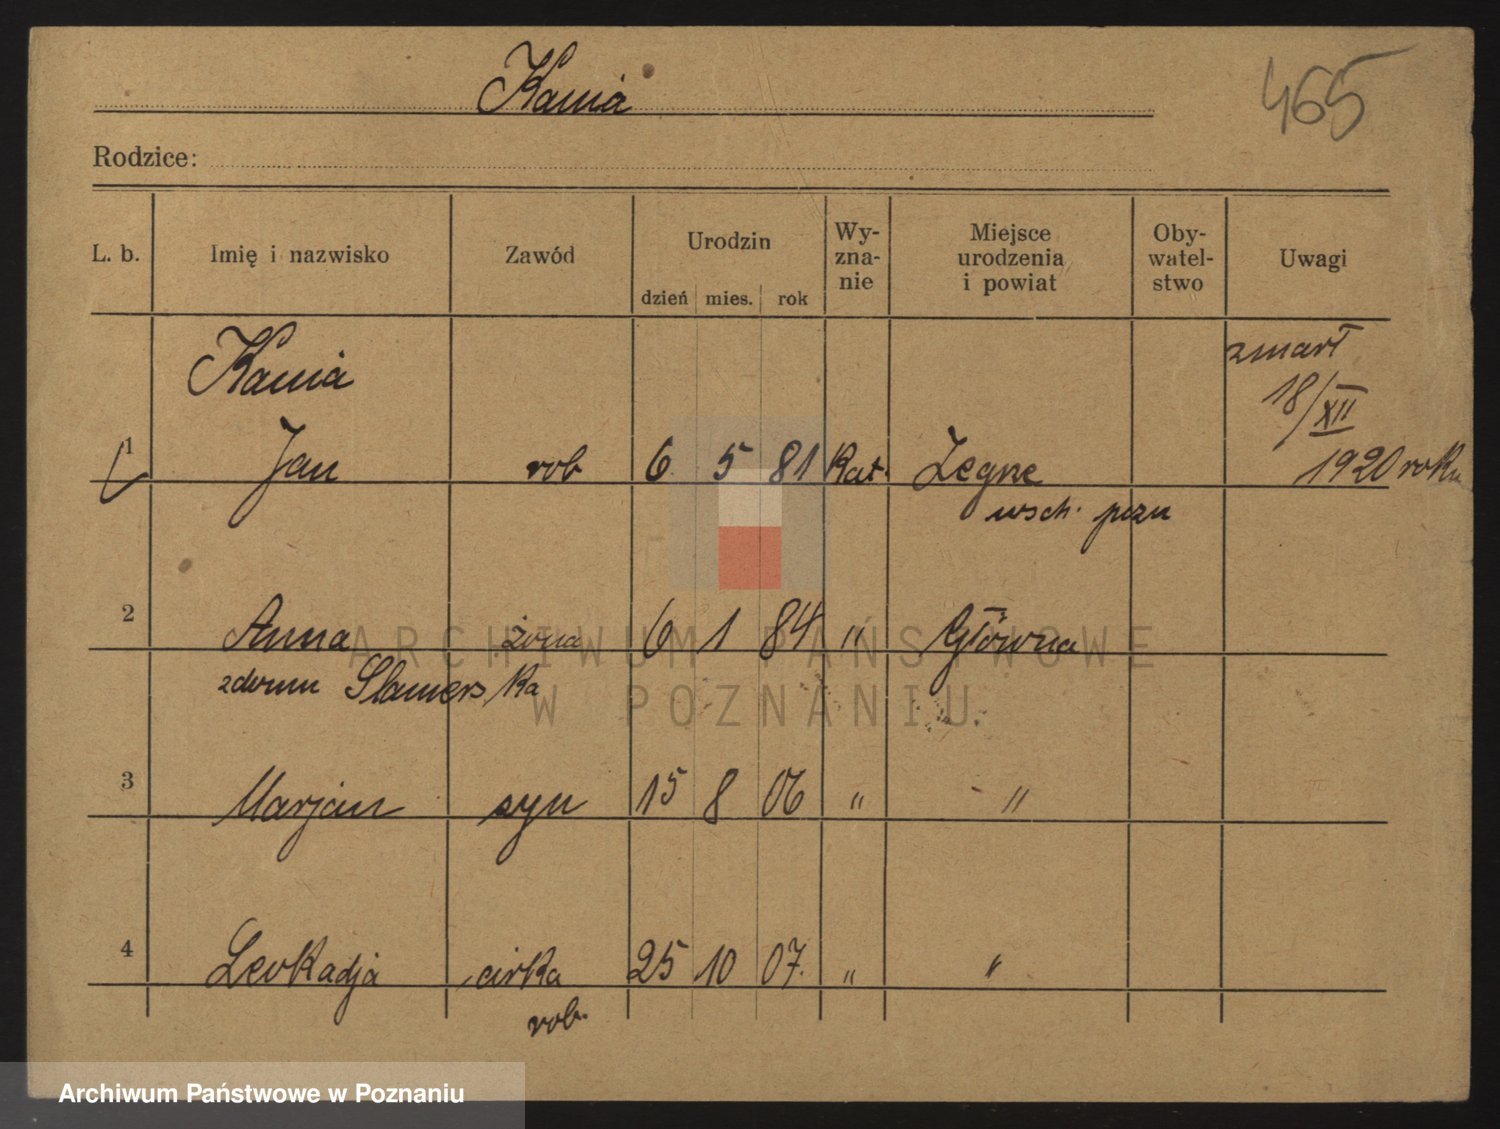 Kania
465
Rodzice:
L. b. Imię i nazwisko Zawód Urodzin dzień mies. rok Wy- zna- nie Miejsce urodzenia i powiat Oby- watel- stwo Uwagi
Kania zmarł
18/XII
1 Jan rob 6 5 81 Kat. 1920 roku
wsch.
2 Anna żona 6 1 84 " Główna
zdomu Slamerska
3 Marjan syn 15 8 06 " "
4 Leokadja cirka 25 10 07. " "
rob.
ARCHIWUM PAŃSTWOWE
W POZNANIU
Archiwum Państwowe w Poznaniu